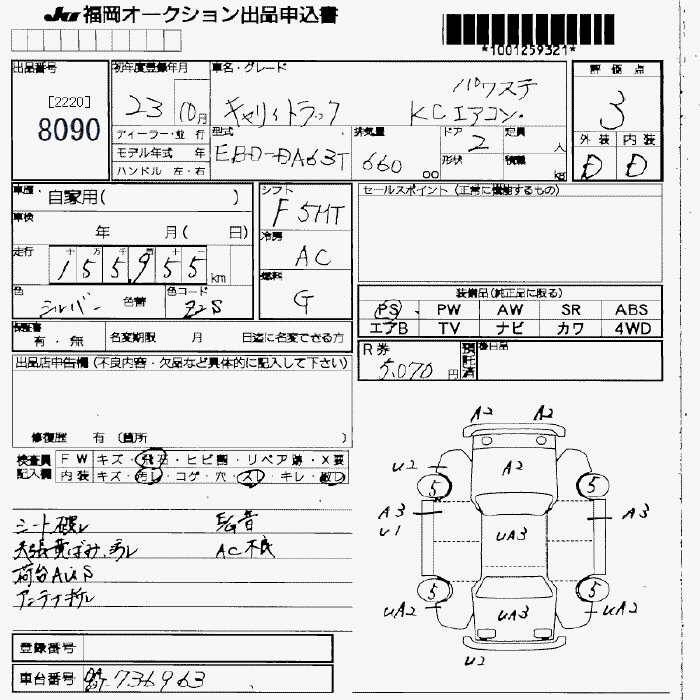 JU 福岡オークション出品申込書
*1001259321*
出品番号
[2220]
8090
初年度登録年月
23 10月
車名・グレード
パワステ
キャリィトラック KCエアコン・
評価点
3
外装 内装
D D
ディーラー・並行
モデル年式 年
ハンドル 左・右
型式
EBD-DA63T
排気量
660
cc
ドア 2
形状
定員 人
積載 kg
車歴・ 自家用( )
車検
年 月( 日)
走行
十 万 千 百 十 一
155955 km
色
シルバー 色替
色コード
Z2S
シフト
F 5MT
冷房
AC
燃料
G
セールスポイント (正常に機能するもの)
装備品(純正品に限る)
PS PW AW SR ABS
エアB TV ナビ カワ 4WD
保証書
有・無
名変期限 月 日迄に名変できる方
R券
5,070円
預託済
後日品
出品店申告欄 (不良内容・欠品など具体的に記入して下さい)
修復歴 有 〔箇所 〕
検査員記入欄
FW キズ・飛石・ヒビ割・リペア跡・X要
内装 キズ・汚レ・コゲ・穴・スレ・キレ・破レ
シート破レ 異音
天張黄ばみ、汚レ AC不良
荷台AUS
アンテナ折レ
登録番号
車台番号 DA63T-736963
A2 A2
A2
U2
5 5
A3 A3
U1
UA3
5 5
UA2 UA2
UA3
U2